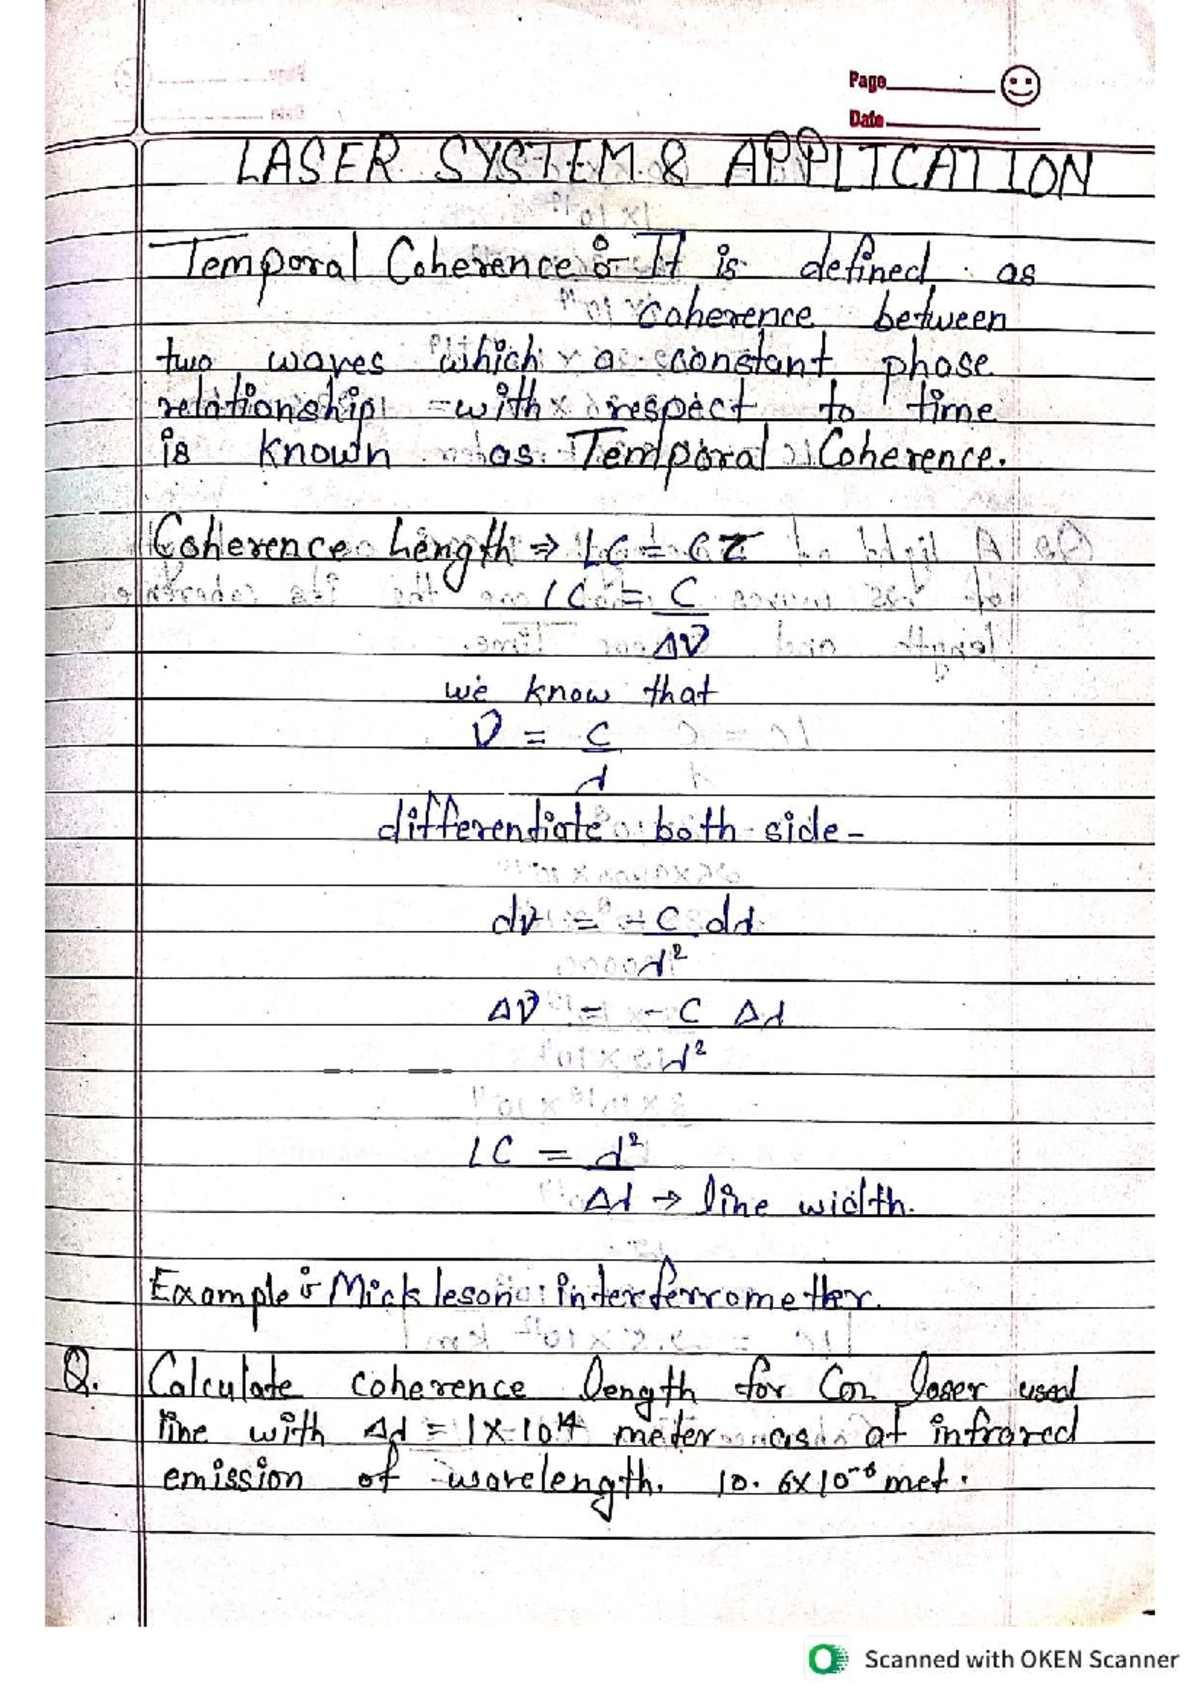 Page
Date
LASER SYSTEM & APPLICATION
Temporal Coherence :- It is defined as
coherence between
two waves which a constant phase
relationship with respect to time
is known as Temporal Coherence.
Coherence Length ⇒ LC = Cτ
LC = C
Δν
we know that
ν = C
λ
differentiate both side-
dν = -C dλ
λ²
Δν = -C Δλ
λ²
LC = λ²
Δλ → line width.
Example :- Micklesono interferromether.
Q. Calculate coherence length for Co2 laser used
line with Δλ = 1×10¹⁴ meter as at infrared
emission of wavelength. 10.6×10⁻⁶ met.
Scanned with OKEN Scanner